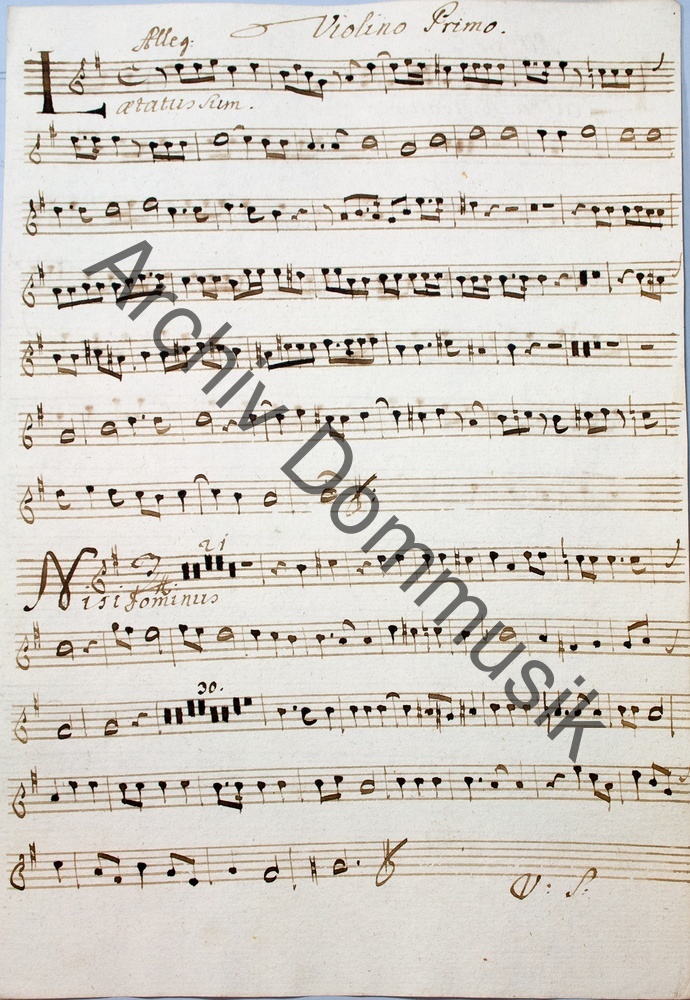 Violino Primo.
Alleg:
Lætatus sum.
21
Nisi Dominus
30.
V: S:
Archiv Dommusik